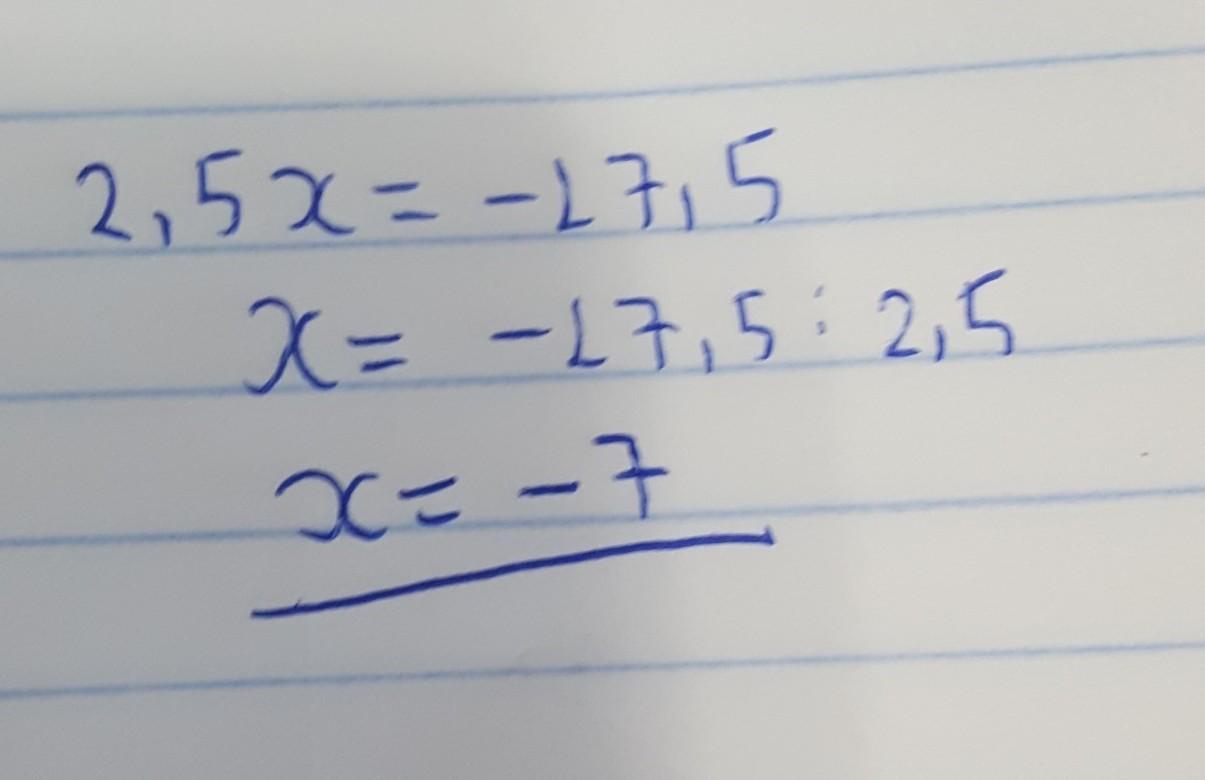 2,5x = -17,5
x = -17,5 : 2,5
x = -7